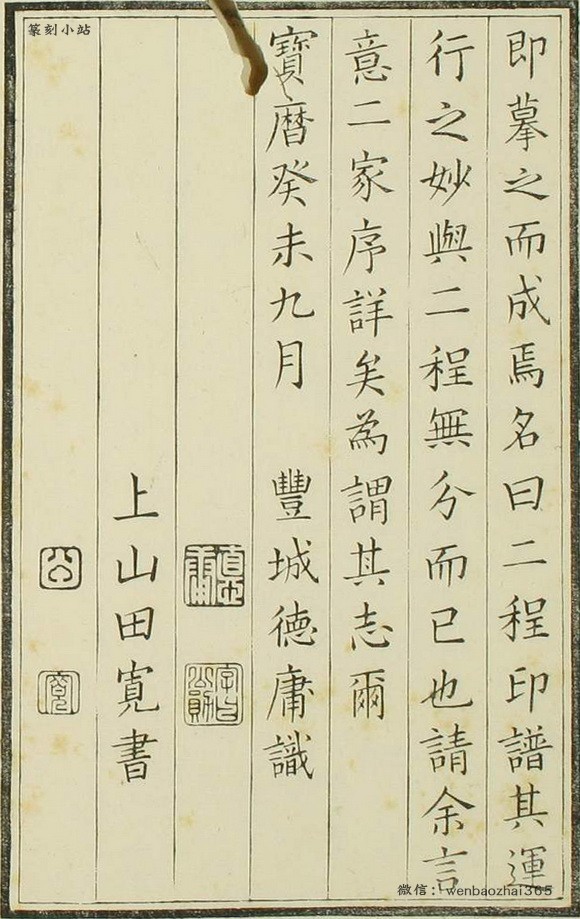 篆刻小站
即摹之而成焉名曰二程印譜其運
行之妙與二程無分而已也請余言
意二家序詳矣為謂其志爾
寶曆癸未九月 豐城德庸識
上山田寬書
公
寬
微信: wenbaozhai365